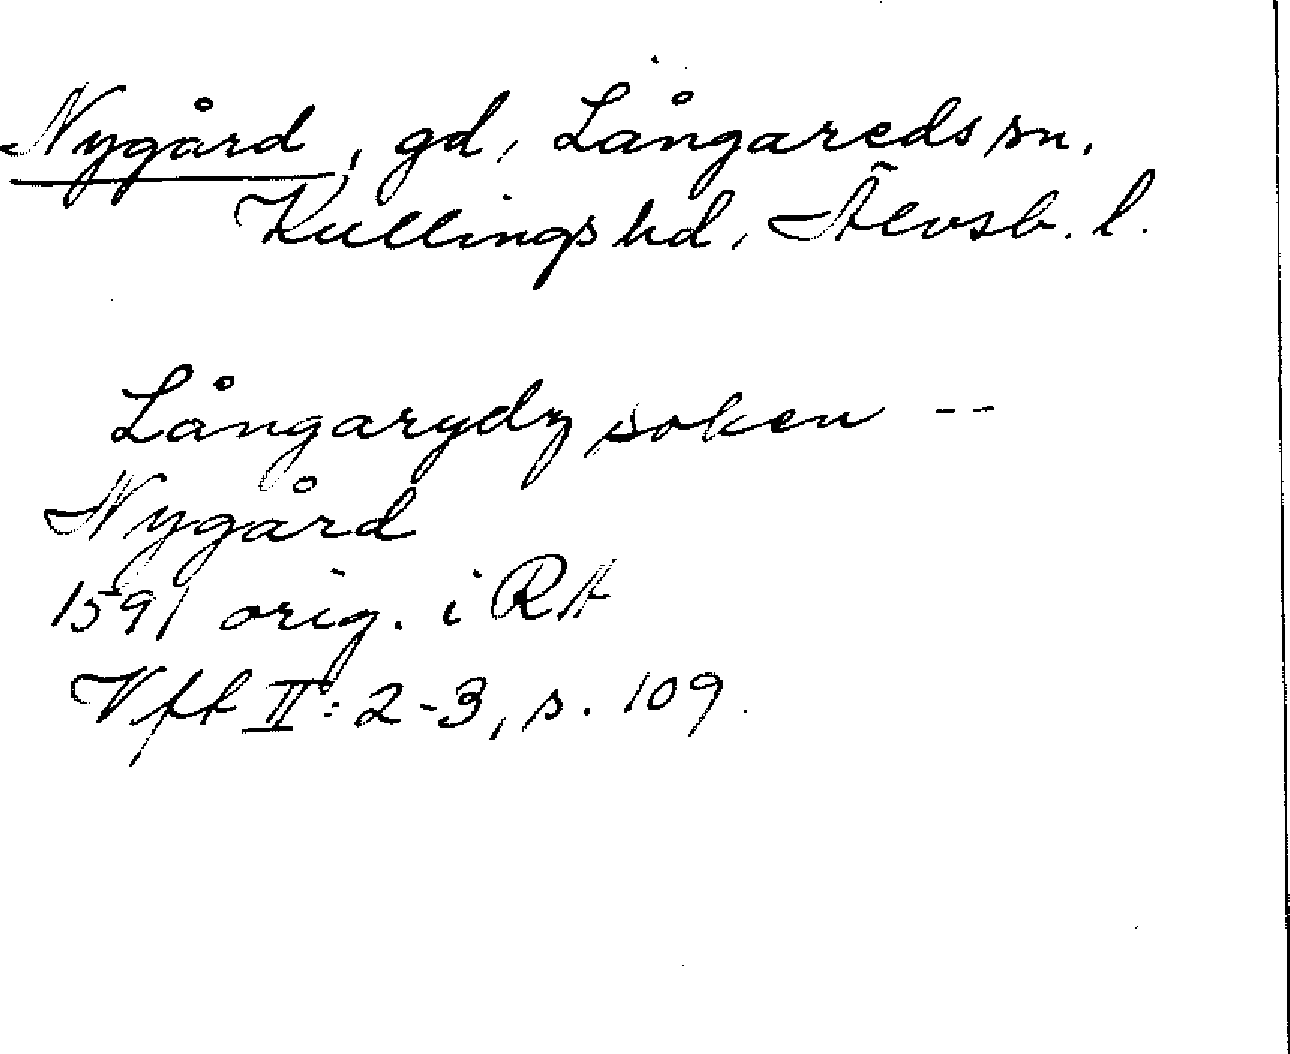 Nygård, gd, Långareds sn,
Kullings hd, Älvsb. l.
Långarydz soken --
Nygård
1591 orig. i RA
Vft II: 2-3, s. 109.